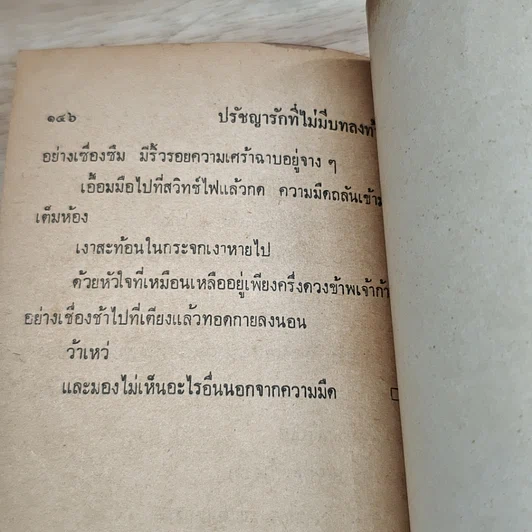 ๑๔๖ ปรัชญารักที่ไม่มีบทลงท
อย่างเซื่องซึม มีริ้วรอยความเศร้าฉาบอยู่จาง ๆ
เอื้อมมือไปที่สวิทช์ไฟแล้วกด ความมืดถลันเข้าม
เต็มห้อง
เงาสะท้อนในกระจกเงาหายไป
ด้วยหัวใจที่เหมือนเหลืออยู่เพียงครึ่งดวงข้าพเจ้าก้า
อย่างเชื่องช้าไปที่เตียงแล้วทอดกายลงนอน
ว้าเหว่
และมองไม่เห็นอะไรอื่นนอกจากความมืด